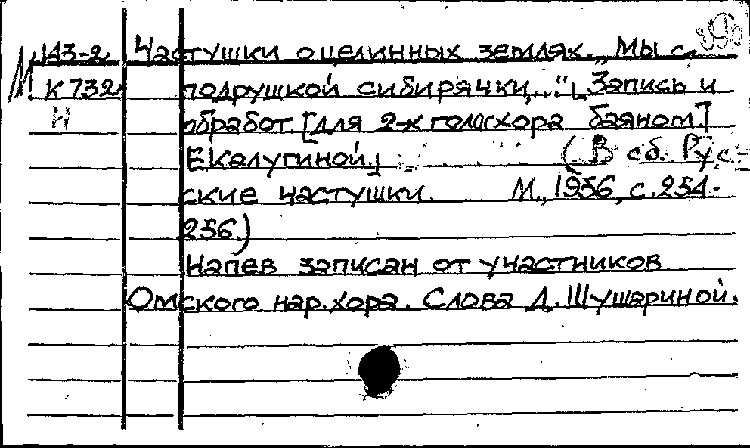 М 143-2 Частушки о целинных землях. „Мы с
К 732 подрушкой сибирячки,..." [Запись и
н обработ. [для 2-х голос. хора с баяном.]
Е. Калугиной.] (В сб. Рус-
ские частушки. М., 1956, с. 254-
256.)
Напев записан от участников
Омского нар. хора. Слова Д. Шушариной.